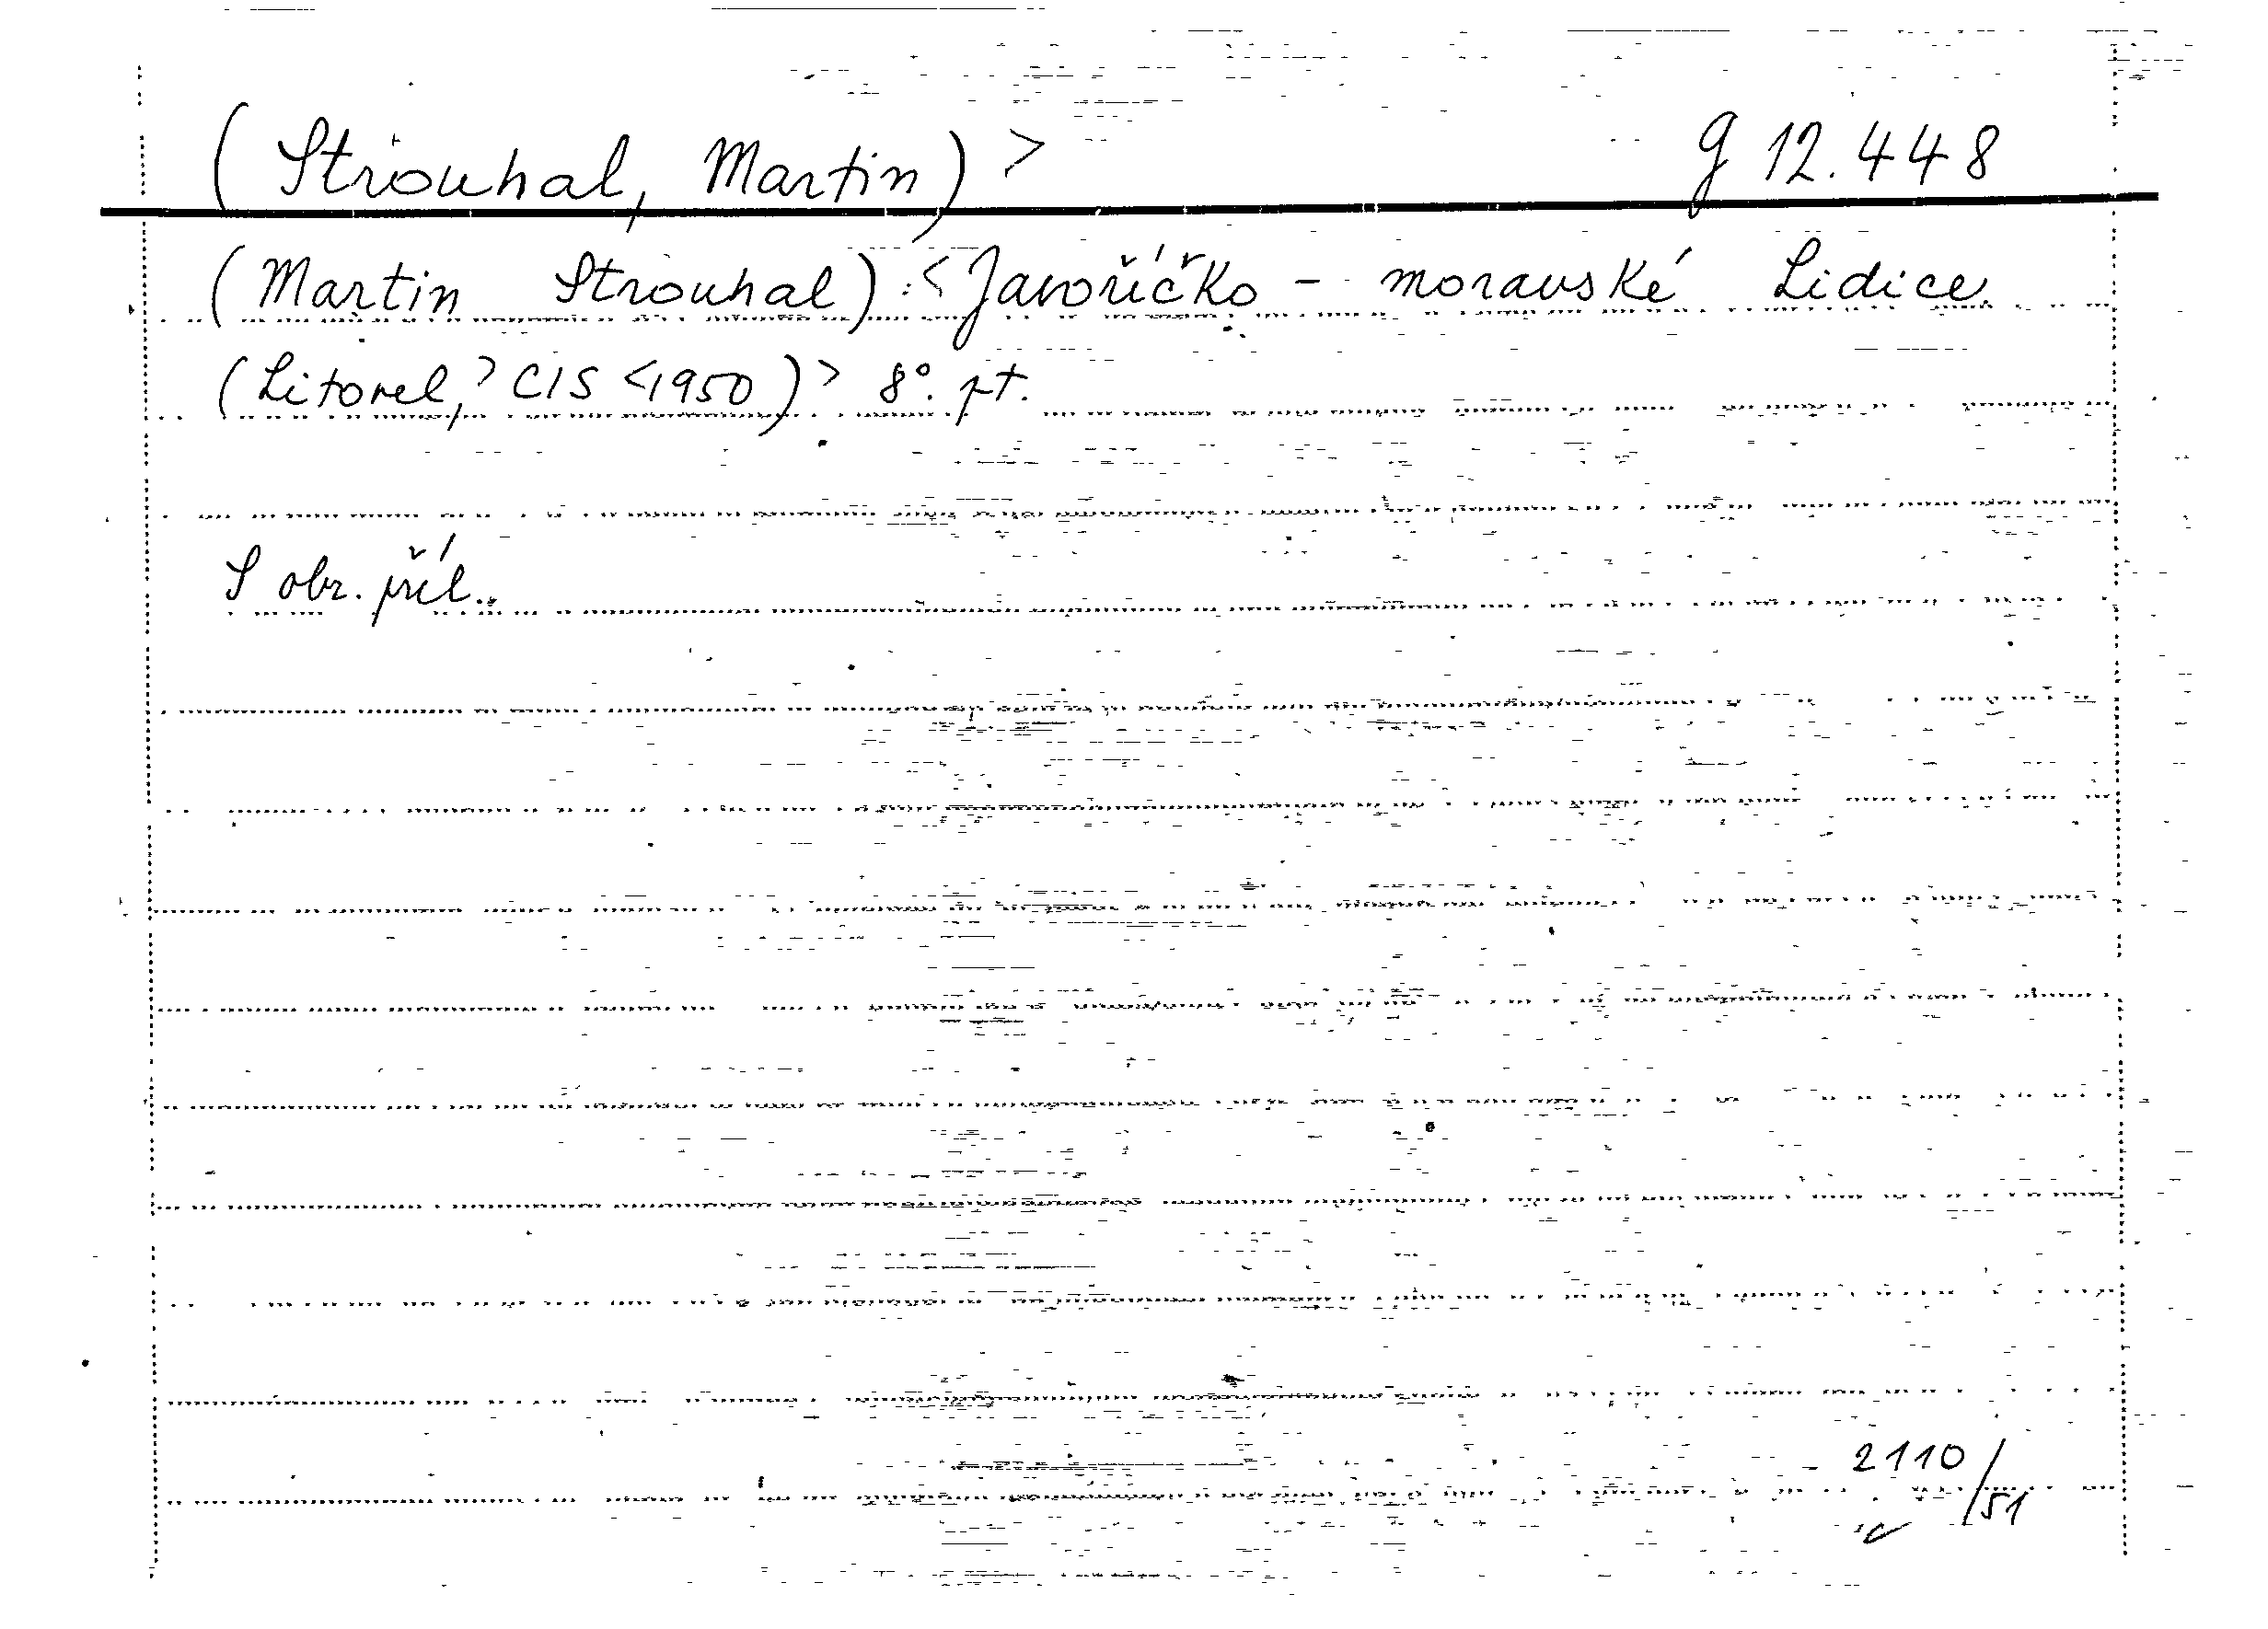 (Strouhal, Martin) > g 12.448
(Martin Strouhal) : < Javoříčko - moravské Lidice.
(Litovel, > CIS < 1950) > 8°. pt.
S obr. příl..
2110/51